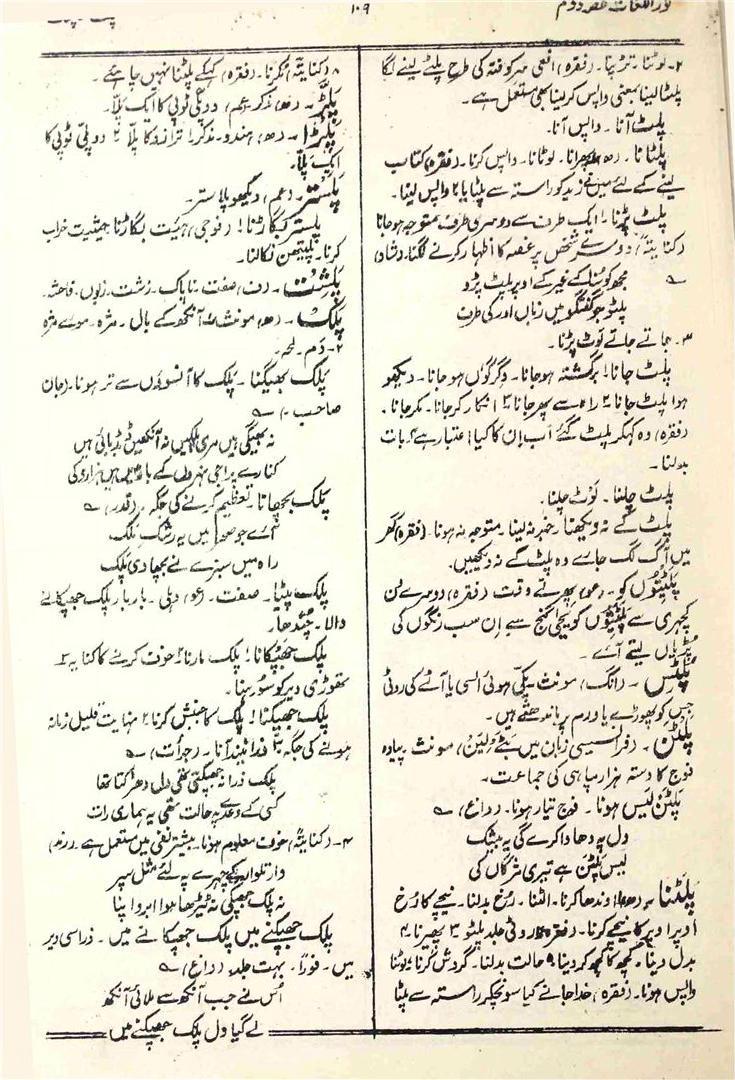 نور اللغات حصہ دوم
۱۰۹
۲۔ لوٹنا۔ تڑپنا۔ (فقرہ) افعی سرکوفتہ کی طرح پلٹے لینے لگا
پلٹا لینا بمعنی واپس کرلینا بھی مستعمل ہے۔
پلٹ آنا۔ واپس آنا۔
پلٹانا۔ (ھ) پھرانا۔ لوٹانا۔ واپس کرنا۔ (فقرہ) کتاب
لینے کے لئے میں نے زید کو راستہ سے پلٹایا ۲ واپس لینا۔
پلٹ پڑنا۔ ایک طرف سے دوسری طرف متوجہ ہوجانا
(کنایتہً) دوسرے شخص پر غصہ کا اظہار کرنے لگنا۔ (شاد) ؎
مجھ کو سنا کے غیر کے اوپر پلٹ پڑو
پلٹو جو گفتگو میں زباں اور کی طرف
۳۔ جاتے جاتے لوٹ پڑنا۔
پلٹ جانا۱ برگشتہ ہوجانا۔ دگرگوں ہو جانا۔ دیکھو
ہوا پلٹ جانا ۲ راہ سے پھر جانا ۳ انکار کرجانا۔ مکر جانا۔
(فقرہ) وہ کہکر پلٹ گئے اب ان کا کیا اعتبار ہے ۴ بات
بدلنا۔
پلٹ چلنا۔ لوٹ چلنا۔
پلٹ کے نہ دیکھنا۔ خبر نہ لینا۔ متوجہ نہ ہونا۔ (فقرہ) گھر
میں آگ لگ جائے وہ پلٹ کے نہ دیکھیں۔
پلٹیوں کو۔ (عو) پھرتے وقت (فقرہ) دوسرے دن
کچہری سے پلٹیوں کو یحیٰی گنج سے ان سب رنگوں کی
پڑیاں لیتے آئے۔
پُلٹس۔ (انگ) مونث۔ پکی ہوئی السی یا آٹے کی روٹی
جس کو پھوڑے یا ورم پر باندھتے ہیں۔
پلٹن۔ (فرانسیسی زبان میں بٹے لین) مونث۔ پیادہ
فوج کا دستہ ہزار سپاہی کی جماعت۔
پلٹن لیس ہونا۔ فوج تیار ہونا۔ (داغ) ؎
دل پہ دھاوا کرے گی یہ بیشک
لیس پلٹن ہے تیری مژگاں کی
پلٹنا۔ (ھ) ۱ اوندھا کرنا۔ الٹنا۔ رخ بدلنا۔ نیچے کا رخ
اوپر اوپر کا نیچے کرنا۔ (فقرہ) روٹی جلد پلٹو ۳ پھیرنا۔ ۴
بدل دینا۔ کچھ کا کچھ کر دینا ۵ حالت بدلنا۔ گردش کرنا ۶ لوٹنا
واپس ہونا۔ (فقرہ) خدا جانے کیا سونچکر راستہ سے پلٹا
۸ (کنایتہً) مکرنا۔ (فقرہ) کہکے پلٹنا نہیں چاہئے۔
پلّڑ۔ (ھ) مذکر (عم) دو پلی ٹوپی کا ایک پلّا۔
پلڑا۔ (ھ) ہندو۔ مذکر ۱ ترازو کا پلّا ۲ دو پلی ٹوپی کا
ایک پلّا۔
پلستر۔ (عم) دیکھو پلاستر۔
پلستر بگاڑنا۱ (فوجی) ہیئت بگاڑنا ۲ حیثیت خراب
کرنا۔ پلیتھن نکالنا۔
پلشت۔ (ف) صفت۔ ناپاک۔ زشت۔ زبوں۔ فاحشہ۔
پلک۔ (ھ) مونث۔ ۱ آنکھ کے بال۔ مژہ۔ موئے مژہ
۲۔ دَم۔ لمحہ۔
پلک بھیگنا۔ پلک کا آنسوؤں سے تر ہونا۔ (جان
صاحب) ؎
نہ بھیگی ہیں مری پلکیں نہ آنکھیں ڈبڈبائی ہیں
پلک بچھانا۔ تعظیم کرنے کی جگہ۔ (قدر) ؎
آئے جو صحن میں یہ رشک فلک
راہ میں سبزے نے بچھا دی پلک
پلک پٹیا۔ صفت۔ (عو) دہلی۔ باربار پلک جھپکانے
والا۔ چُندھا۔
پلک جھپکانا۱ پلک مارنا ۲ خوف کرنے کا کنایہ ۳
تھوڑی دیر کو سو رہنا۔
پلک جھپکنا۱ پلک کا جنبش کرنا ۲ نہایت قلیل زمانہ
ہونے کی جگہ ۳ ذرا نیند آنا۔ (جرأت) ؎
پلک ذرا نہ جھپکتی تھی دل دھڑکتا تھا
کسی کے وعدے پہ حالت تھی یہ ہماری رات
۴۔ (کنایتہً) خوف معلوم ہونا۔ بیشتر نفی میں مستعمل ہے۔ (رند)
وار تلوار کے چہرے پہ لئے مثل سپر
نہ پلک جھپکی نہ ٹیڑھا ہوا ابرو اپنا
پلک جھپکنے میں پلک جھپکانے میں۔ ذرا سی دیر
میں۔ فوراً۔ بہت جلد۔ (داغ) ؎
اُس نے جب آنکھ سے ملائی آنکھ
لے گیا دل پلک جھپکنے میں